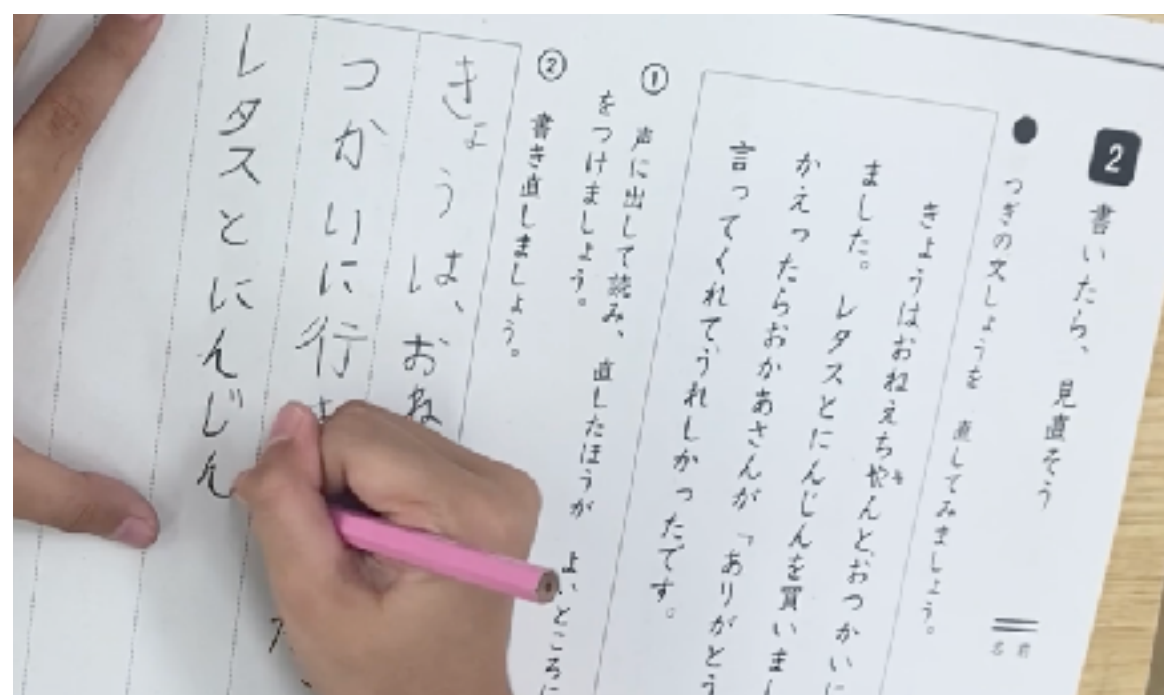 2 書いたら、見直そう
● つぎの文しょうを 直してみましょう。
名前
きょうはおねえちゃんと、おつかいに
ました。レタスとにんじんを買いまし
かえったらおかあさんが「ありがとう
言ってくれて、うれしかったです。
① 声に出して読み、直したほうが よいところに
をつけましょう。
② 書き直しましょう。
きょうは、おね
つかいに行
レタスとにんじん